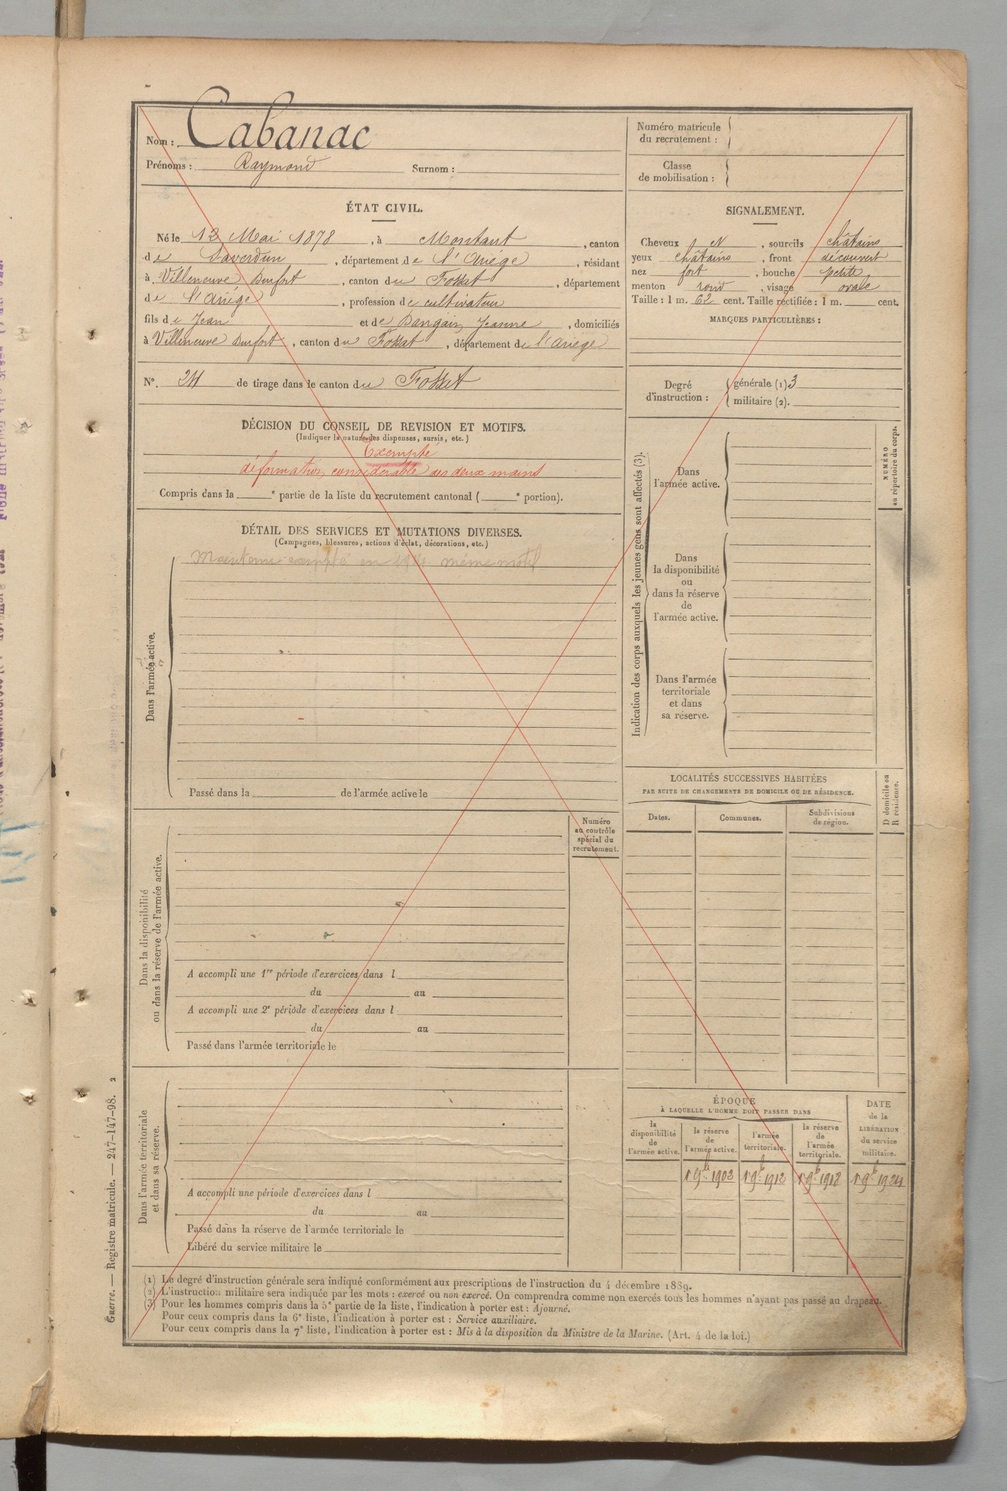 Nom : Cabanac
Prénoms : Raymond Surnom :
Numéro matricule
du recrutement :
Classe
de mobilisation :
ÉTAT CIVIL.
Né le 12 Mai 1878, à Montaut, canton
de Saverdun, département de l'Ariège, résidant
à Villeneuve Durfort, canton du Fossat, département
de l'Ariège, profession de cultivateur
fils de Jean et de Dangain Jeanne, domiciliés
à Villeneuve Durfort, canton du Fossat, département de l'Ariège
N°. 24 de tirage dans le canton du Fossat
SIGNALEMENT.
Cheveux N, sourcils châtains
yeux châtains, front découvert
nez fort, bouche petite
menton rond, visage ovale
Taille : 1 m. 62 cent. Taille rectifiée : 1 m. cent.
MARQUES PARTICULIÈRES :
Degré
d'instruction :
générale (1) 3
militaire (2).
DÉCISION DU CONSEIL DE REVISION ET MOTIFS.
(Indiquer la nature des dispenses, sursis, etc.)
Exempté
déformation considérable des deux mains
Compris dans la e partie de la liste du recrutement cantonal ( e portion).
DÉTAIL DES SERVICES ET MUTATIONS DIVERSES.
(Campagnes, blessures, actions d'éclat, décorations, etc.)
même motif
Dans l'armée active.
Passé dans la de l'armée active le
Indication des corps auxquels les jeunes gens sont affectés (3).
NUMÉRO
au répertoire du corps.
Dans
l'armée active.
Dans
la disponibilité
ou
dans la réserve
de
l'armée active.
Dans l'armée
territoriale
et dans
sa réserve.
LOCALITÉS SUCCESSIVES HABITÉES
PAR SUITE DE CHANGEMENTS DE DOMICILE OU DE RÉSIDENCE.
D domicile ou
R résidence.
Dates.
Communes.
Subdivisions
de région.
Numéro
au contrôle
spécial du
recrutement.
Dans la disponibilité
ou dans la réserve de l'armée active.
A accompli une 1re période d'exercices dans l
du au
A accompli une 2e période d'exercices dans l
du au
Passé dans l'armée territoriale le
Dans l'armée territoriale
et dans sa réserve.
A accompli une période d'exercices dans l
du au
Passé dans la réserve de l'armée territoriale le
Libéré du service militaire le
ÉPOQUE
À LAQUELLE L'HOMME DOIT PASSER DANS
la
disponibilité
de
l'armée active.
la réserve
de
l'armée active.
l'armée
territoriale.
la réserve
de
l'armée
territoriale.
DATE
de la
LIBÉRATION
du service
militaire.
1 9b 1902 1 9b 1912 1 9b 1918 1 9b 1924
(1) Le degré d'instruction générale sera indiqué conformément aux prescriptions de l'instruction du 4 décembre 1889.
(2) L'instruction militaire sera indiquée par les mots : exercé ou non exercé. On comprendra comme non exercés tous les hommes n'ayant pas passé au drapeau.
(3) Pour les hommes compris dans la 5e partie de la liste, l'indication à porter est : Ajourné.
Pour ceux compris dans la 6e liste, l'indication à porter est : Service auxiliaire.
Pour ceux compris dans la 7e liste, l'indication à porter est : Mis à la disposition du Ministre de la Marine. (Art. 4 de la loi.)
Guerre. — Registre matricule. — 247-147-98. 2